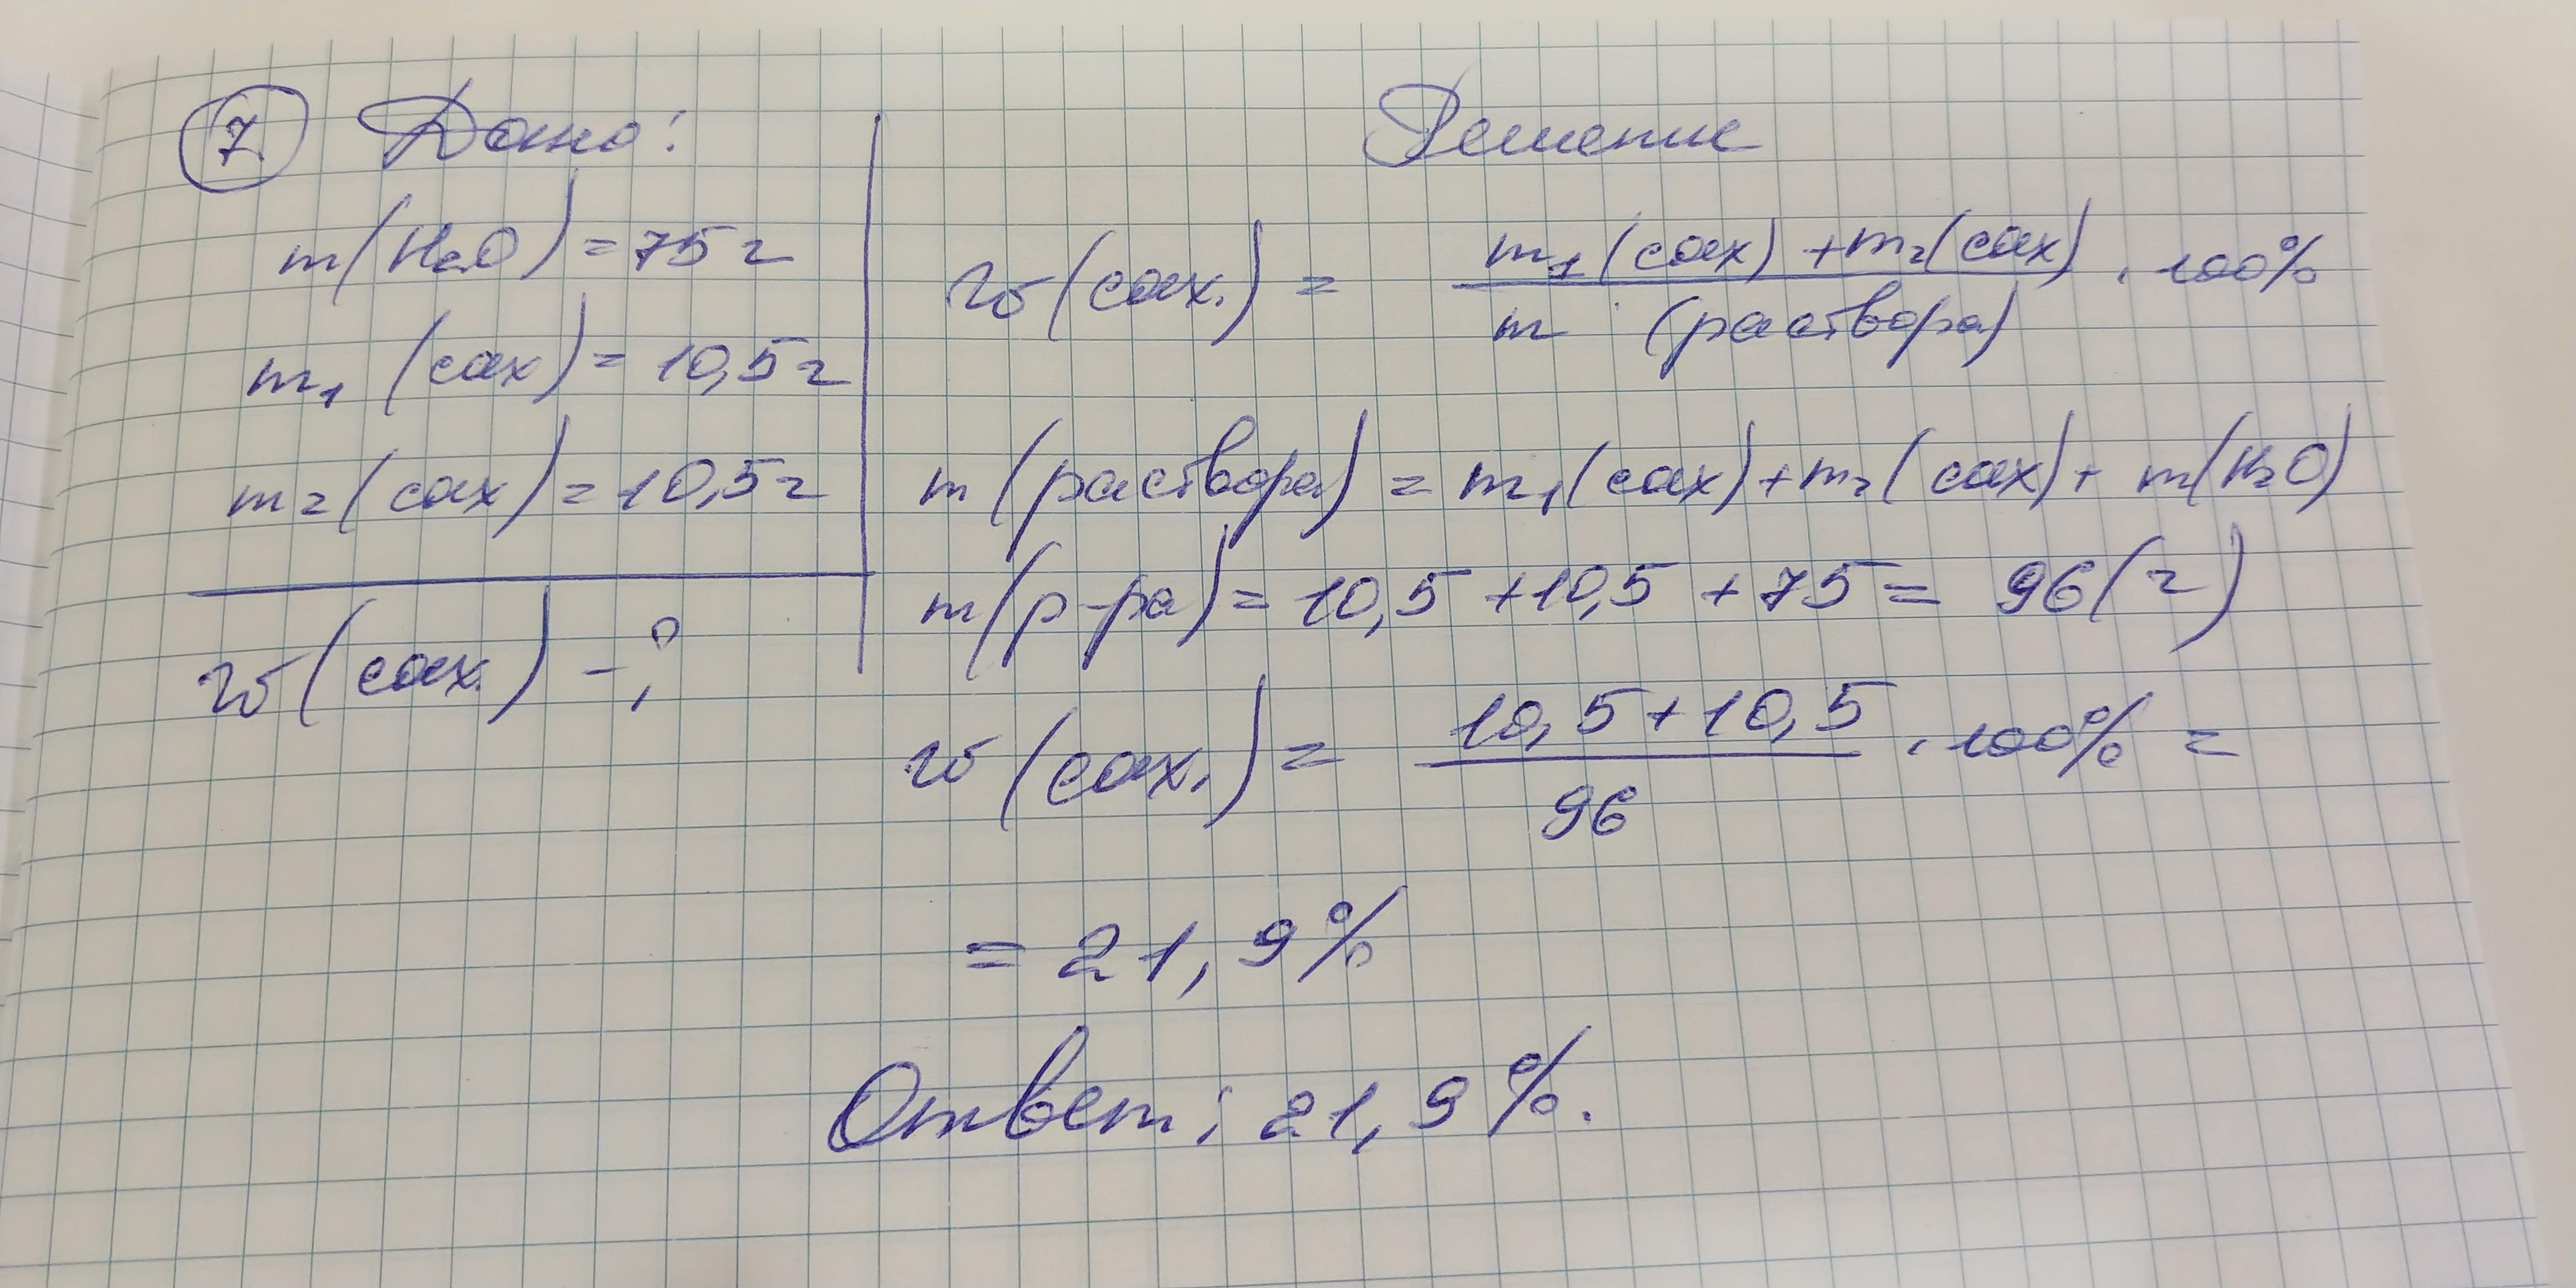 7. Дано:
m(H₂O) = 75 г
m₁ (сах) = 10,5 г
m₂ (сах) = 10,5 г
w (сах.) – ?
Решение
w (сах.) = m₁ (сах) + m₂ (сах) / m (раствора) · 100%
m (раствора) = m₁ (сах) + m₂ (сах) + m(H₂O)
m (р-ра) = 10,5 + 10,5 + 75 = 96 (г)
w (сах.) = 10,5 + 10,5 / 96 · 100% =
= 21,9%
Ответ: 21,9%.